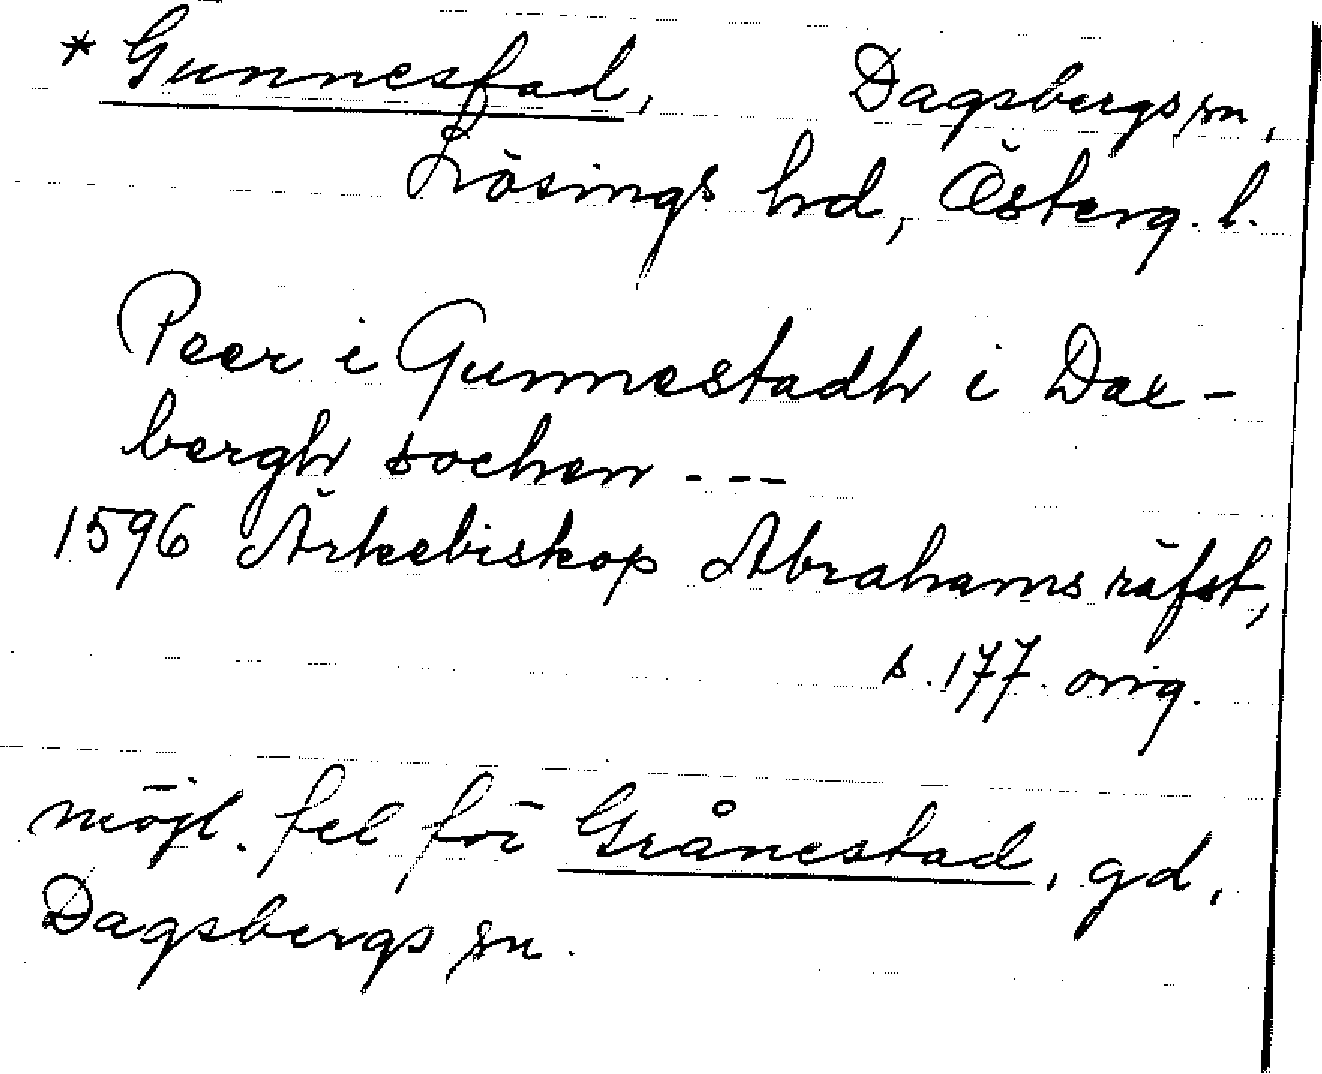 * Gunnestad, Dagsbergs sn,
Lösings hd, Österg. l.
Peer i Gunnestadh i Dax-
bergh sochen ---
1596 Ärkebiskop Abrahams räfst,
s. 177. orig.
möjl. fel för Grånestad, gd,
Dagsbergs sn.